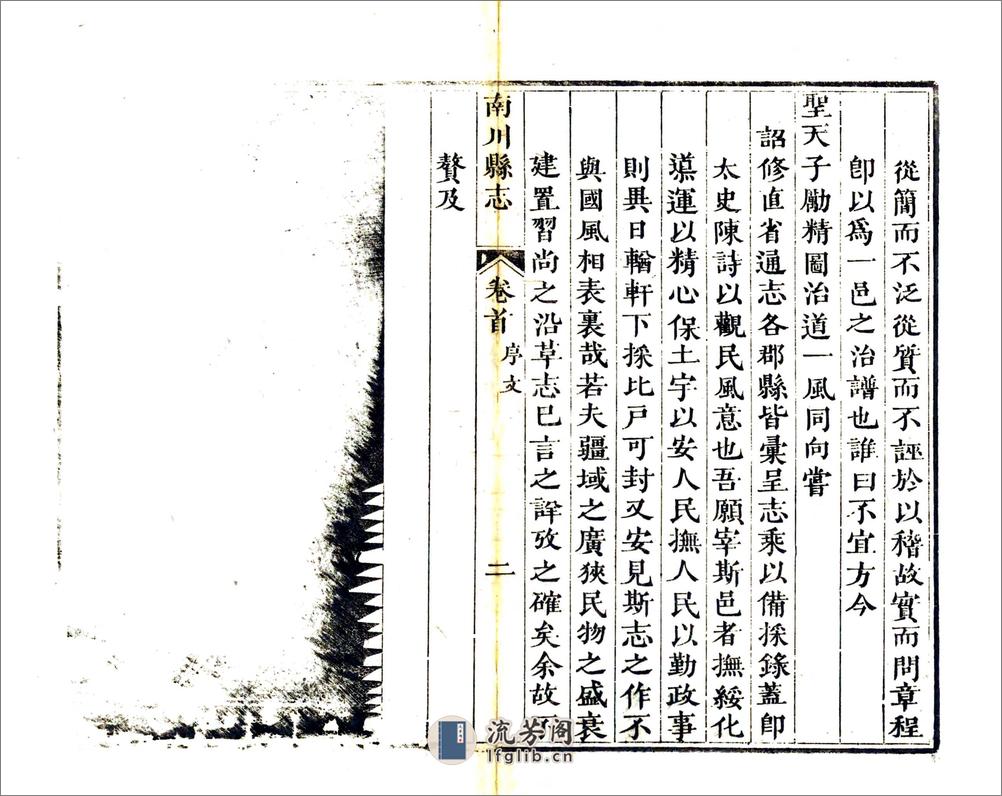 從簡而不泛從質而不誣於以稽故實而問章程
卽以爲一邑之治譜也誰曰不宜方今
聖天子勵精圖治道一風同向嘗
詔修直省通志各郡縣皆彙呈志乘以備採錄蓋卽
太史陳詩以觀民風意也吾願宰斯邑者撫綏化
導運以精心保土宇以安人民撫人民以勤政事
則異日輶軒下採比戸可封又安見斯志之作不
與國風相表裏哉若夫疆域之廣狹民物之盛衰
建置習尚之沿革志已言之詳攷之確矣余故
南川縣志 卷首 序文 二
贅及
流芳阁
lfglib.cn